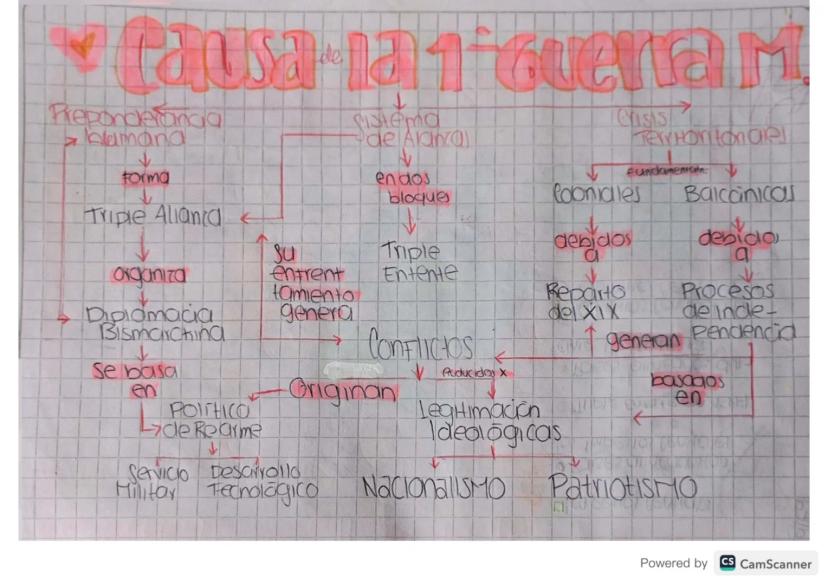 Causa de la 1ª Guerra M.
Preponderancia
Alemana
Sistema
de Alianza
Crisis
Territoriales
fundamentan
forma
en dos
bloques
Coloniales
Balcánicas
Triple Alianza
debidos
a
debido
a
Su
enfrent
tamiento
genera
Triple
Entente
organiza
Reparto
del XIX
Procesos
de inde-
pendencia
Diplomacia
Bismarchina
Conflictos
generan
Se basa
en
Originan
Aducidos x
basados
en
Politico
de Rearme
Legitimación
Ideologógicas
Servicio
Militar
Desarrollo
Tecnológico
Nacionalismo
Patriotismo
Powered by CS CamScanner